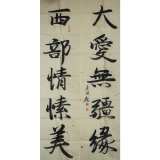 大愛無疆緣
西部情愫美